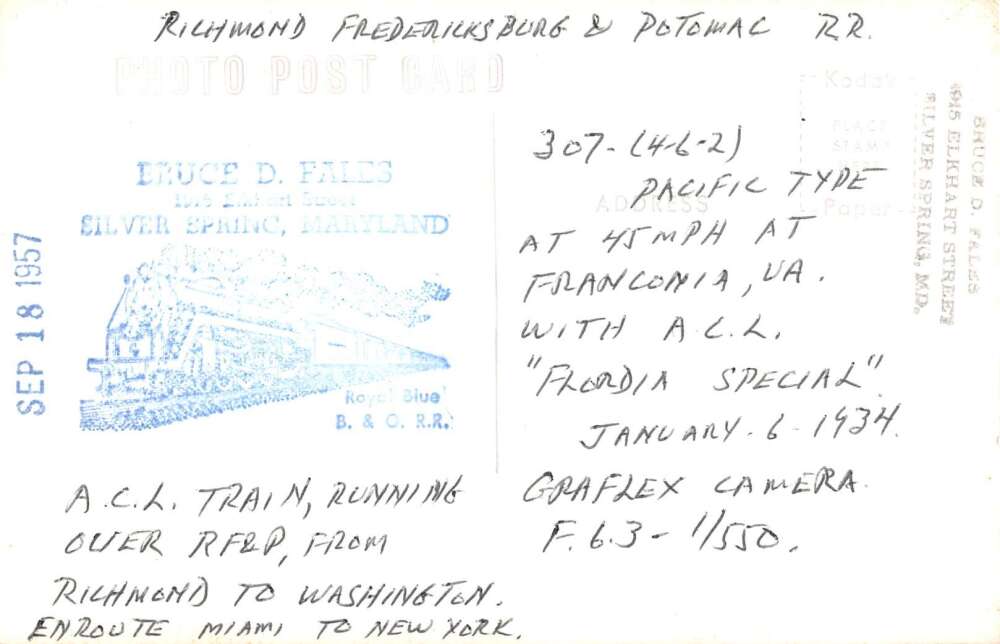 RICHMOND FREDERICKSBURG & POTOMAC R.R.
PHOTO POST CARD
BRUCE D. FALES
Elkhart Street
SILVER SPRING, MARYLAND
Royal Blue
B. & O. R.R.
SEP 18 1957
A.C.L. TRAIN, RUNNING
OVER RF&P, FROM
RICHMOND TO WASHINGTON.
ENROUTE MIAMI TO NEW YORK.
307-(4-6-2)
PACIFIC TYPE
AT 45 MPH AT
FRANCONIA, VA.
WITH A.C.L.
"FLORDIA SPECIAL"
JANUARY-6-1934.
GRAFLEX CAMERA.
F.6.3 - 1/550.
ADDRESS
Kodak
PLACE
STAMP
HERE
Paper
BRUCE D. FALES
ELKHART STREET
SILVER SPRING, MD.